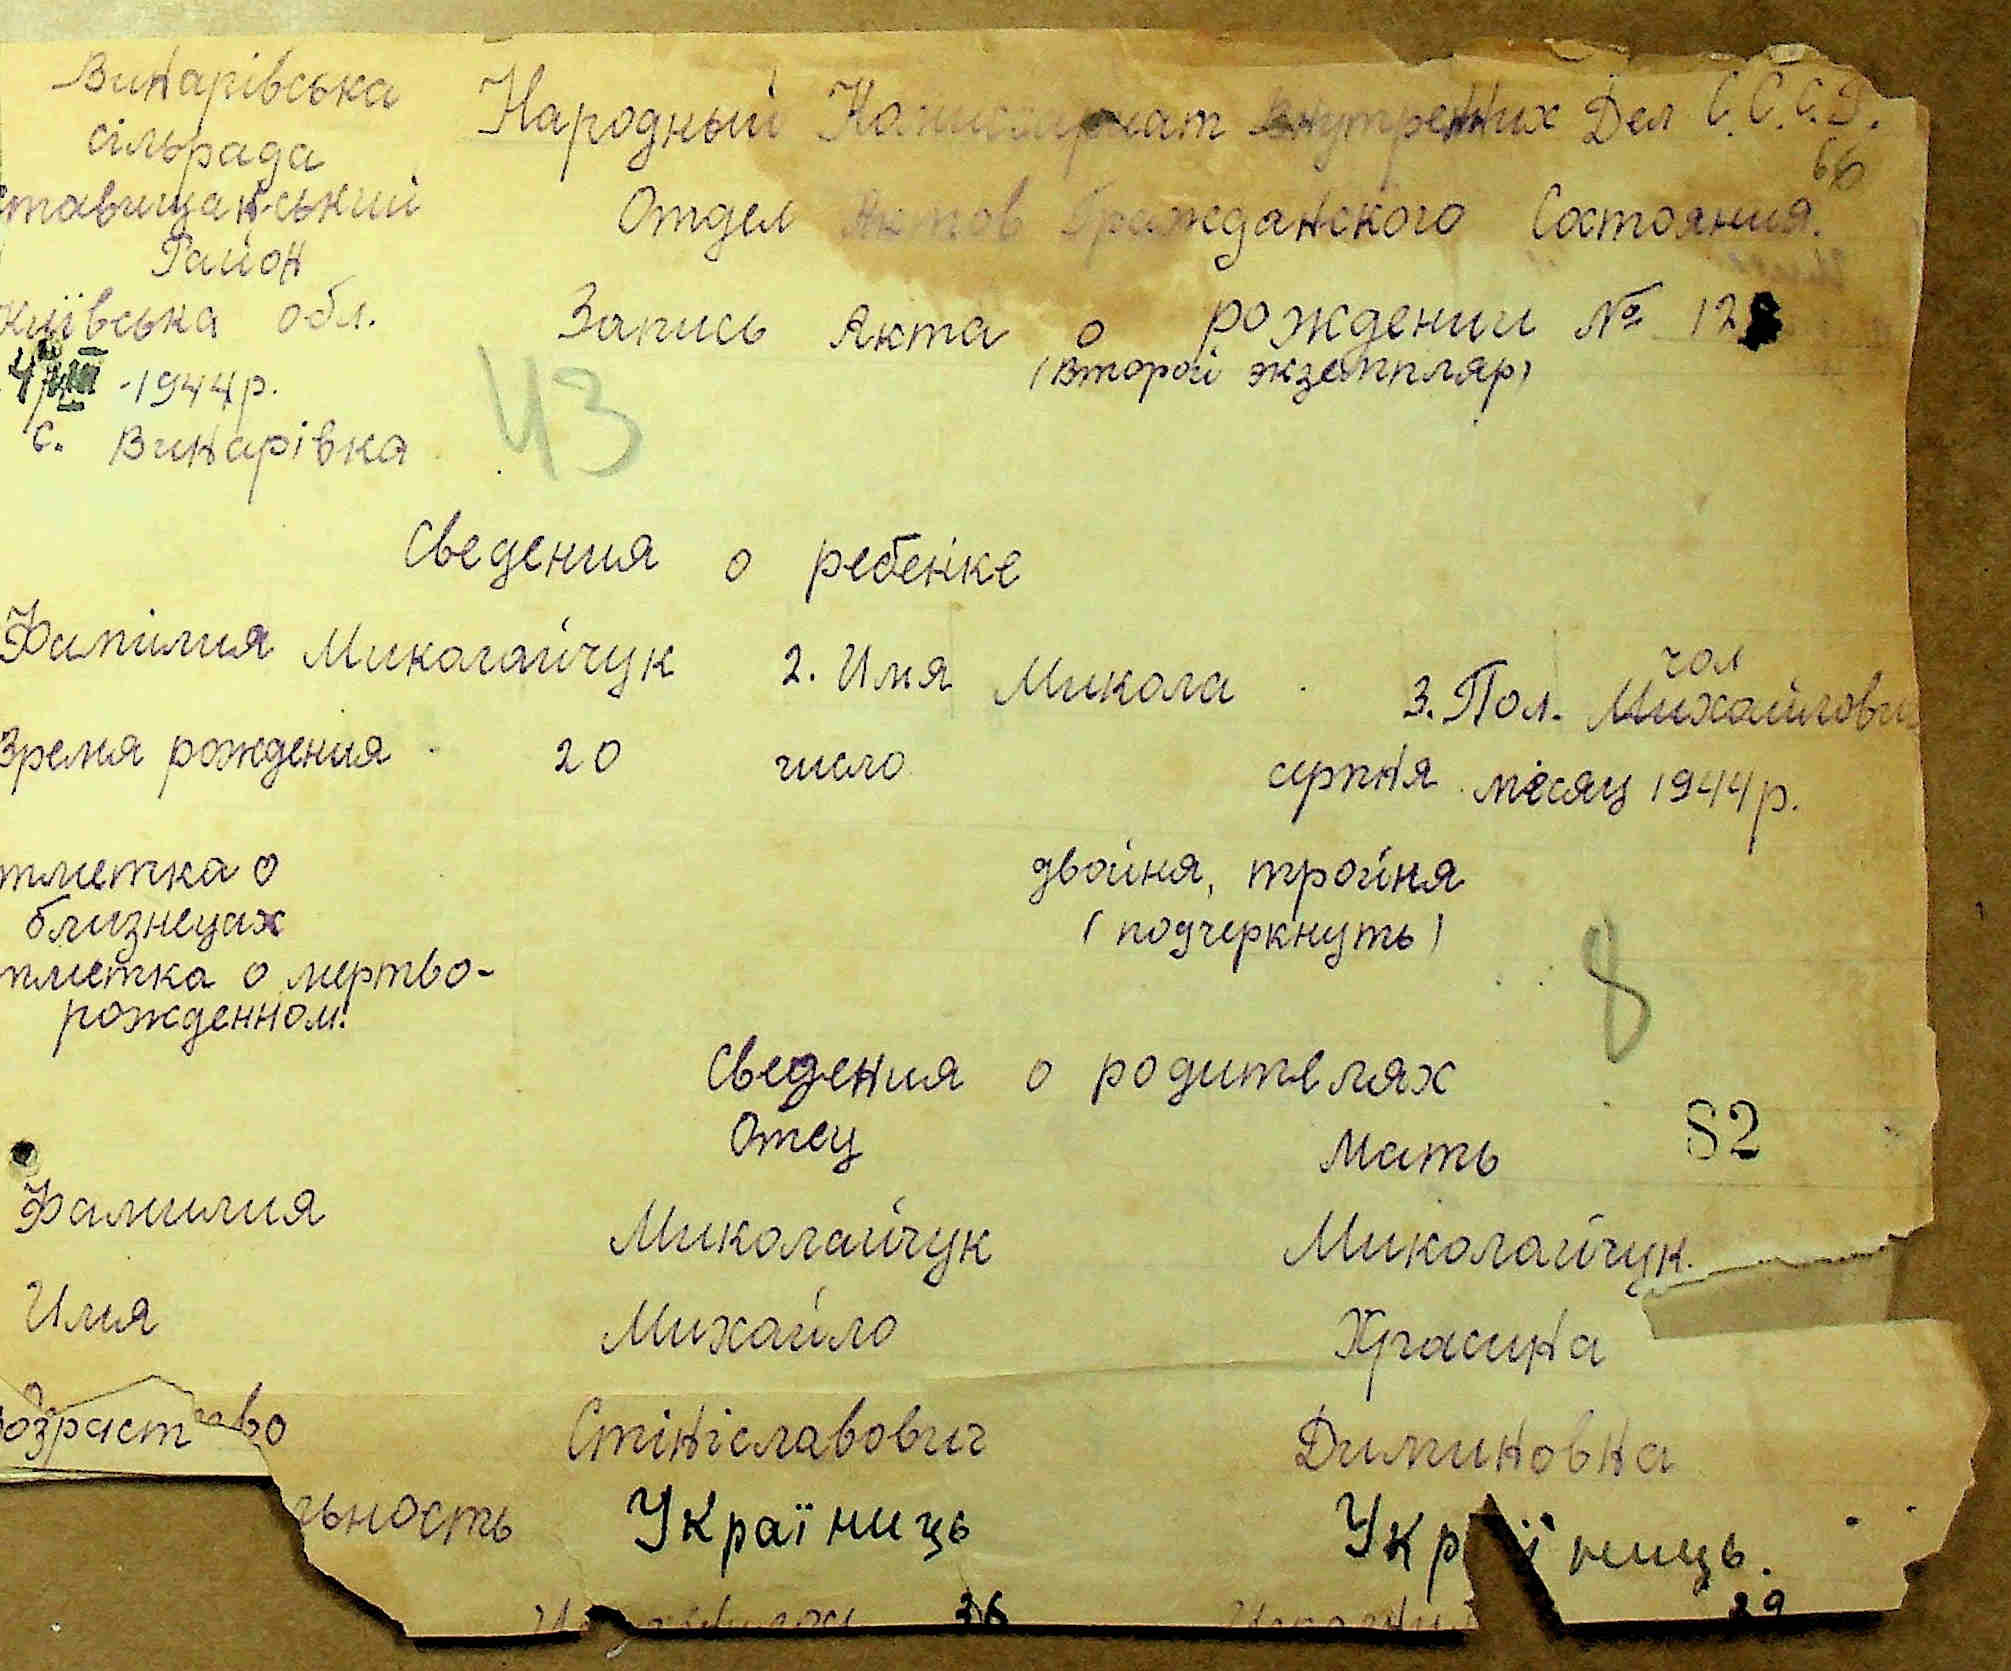 Винарівська
сільрада
ставищанський
Район
київська обл.
-1944р.
с. Винарівка
Народный Комиссариат Внутренних Дел С.С.С.Р.
66
Отдел Актов Гражданского Состояния.
Запись Акта о рождении № 128
(Второй экземпляр)
43
Сведения о ребенке
Фамилия Миколайчук 2. Имя Микола 3. Пол. чол
Михайлови
Время рождения 20 число серпня месяц 1944р.
тметка о
близнецах
двойня, тройня
(подчеркнуть)
тметка о мертво-
рожденном.
8
Сведения о родителях
Отец Мать
82
Фамилия Миколайчук Миколайчук.
Имя Михайло Храсина
Стініславович Диминовка
льность Україниць Україниць.
36 29